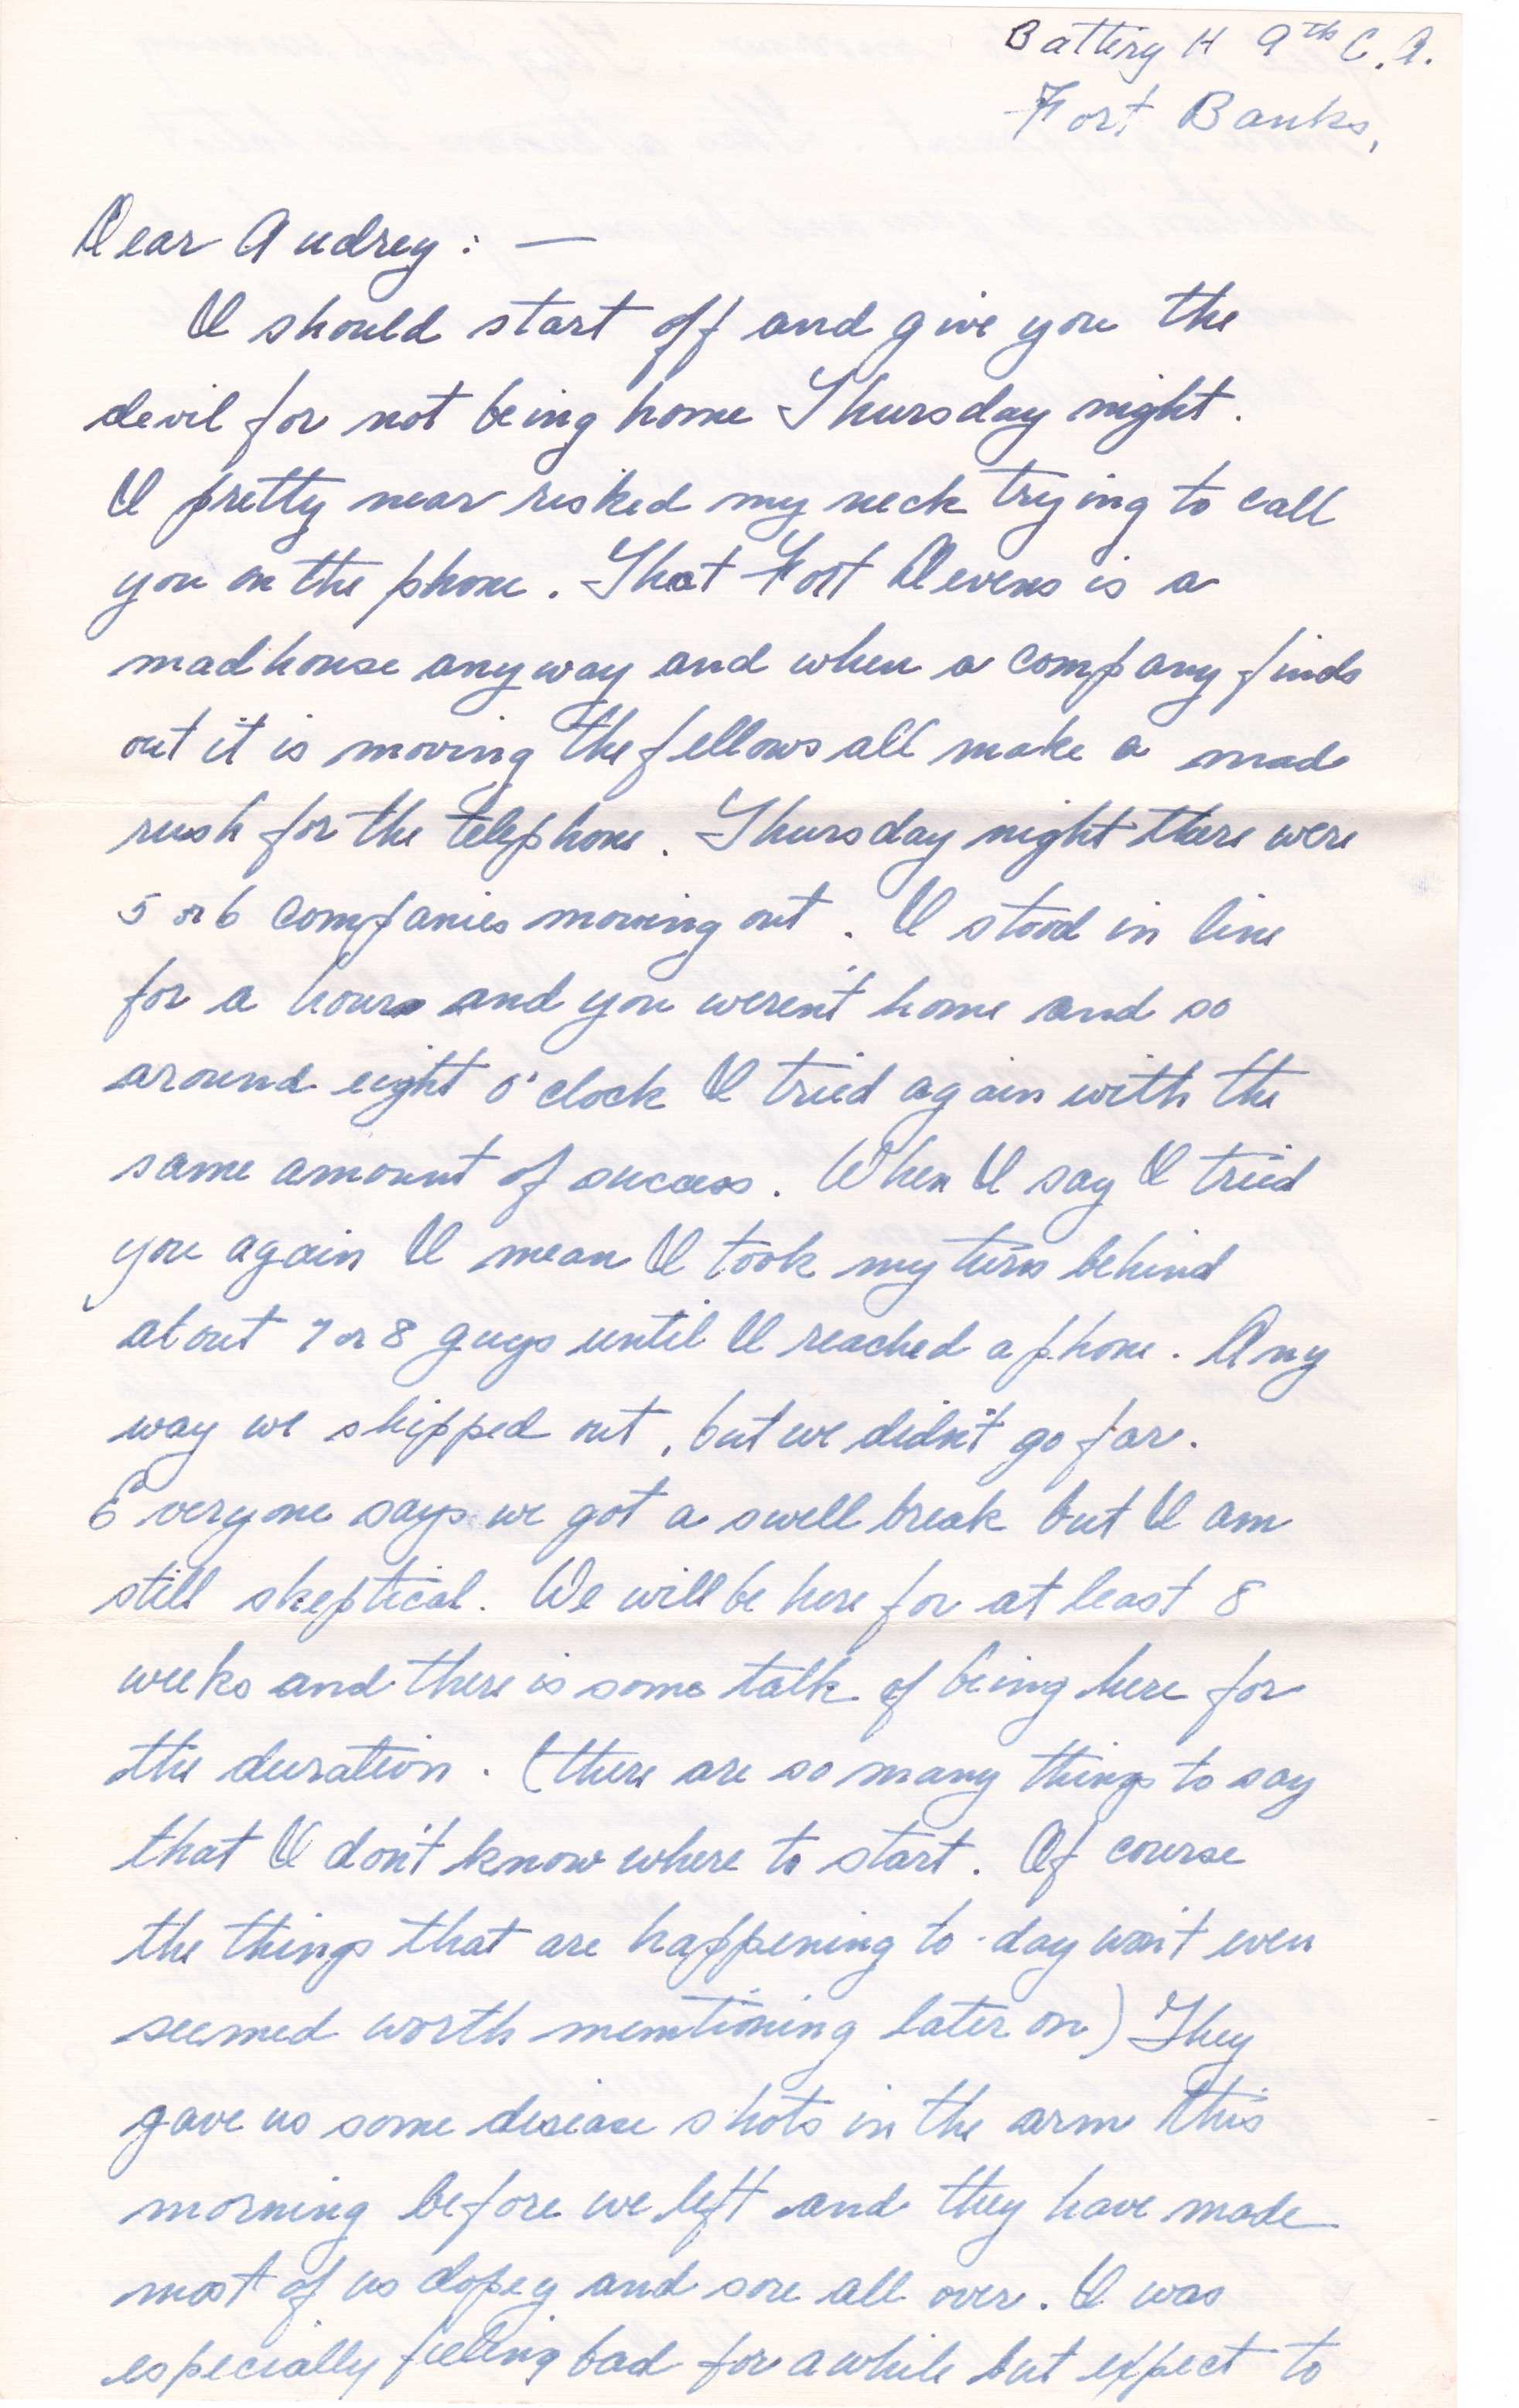 Battery H 9th C.A.
Fort Banks,
Dear Audrey: —
I should start off and give you the
devil for not being home Thursday night.
I pretty near risked my neck trying to call
you on the phone. That Fort Devens is a
madhouse anyway and when a company finds
out it is moving the fellows all make a mad
rush for the telephone. Thursday night there were
5 or 6 companies moving out. I stood in line
for a hour and you weren't home and so
around eight o'clock I tried again with the
same amount of success. When I say I tried
you again I mean I took my turn behind
about 7 or 8 guys until I reached a phone. Any
way we shipped out, but we didn't go far.
Everyone says we got a swell break but I am
still skeptical. We will be here for at least 8
weeks and there is some talk of being here for
the duration. (there are so many things to say
that I don't know where to start. Of course
the things that are happening to-day won't even
seemed worth memtioning later on) They
gave us some disease shots in the arm this
morning before we left and they have made
most of us dopey and sore all over. I was
especially feeling bad for awhile but expect to